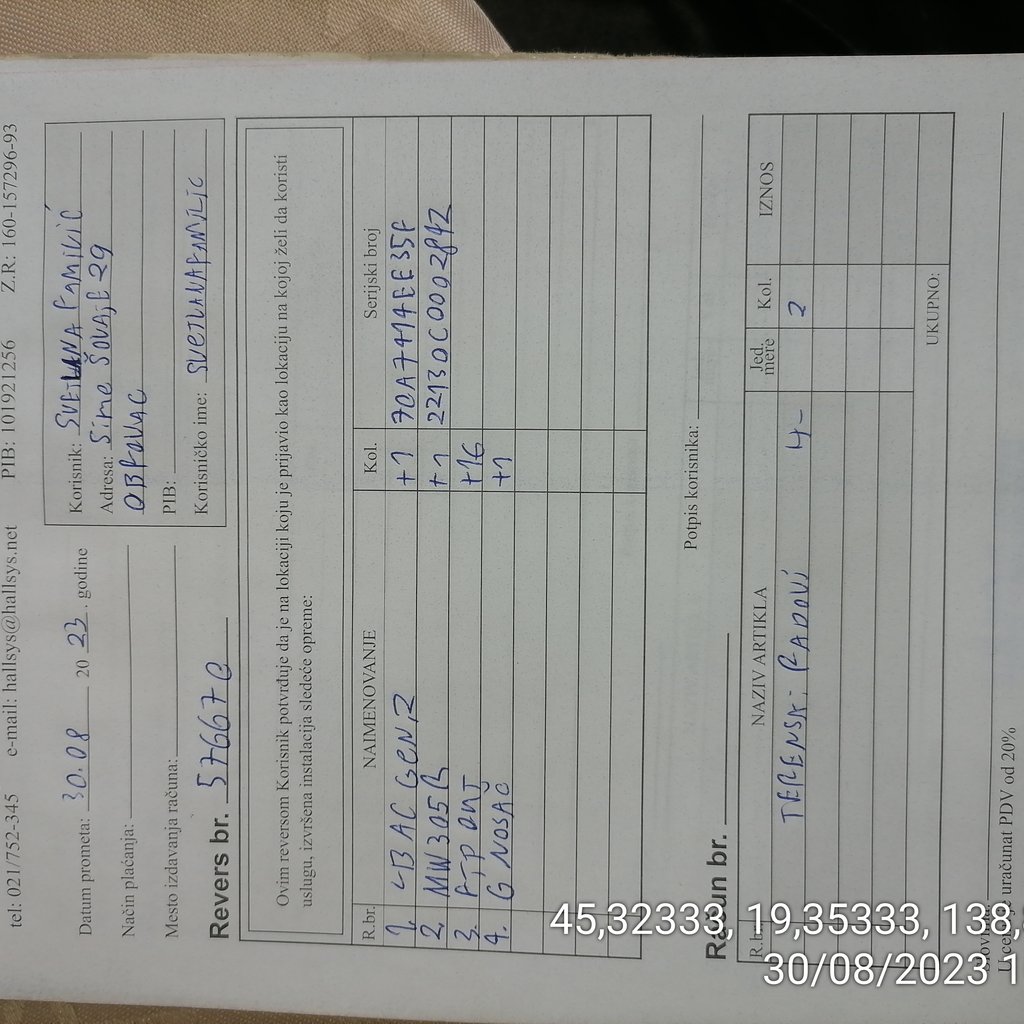 tel: 021/752-345 e-mail: hallsys@hallsys.net PIB: 101921256 Z.R: 160-157296-93
Datum prometa: 30.08 20 23. godine
Način plaćanja:
Mesto izdavanja računa:
Revers br. 57667
Korisnik: SVETLANA FAMILIĆ
Adresa: Sime ŠOVAJE 29
OBROVAC
PIB:
Korisničko ime: SVETLANAFAMILIC
Ovim reversom Korisnik potvrđuje da je na lokaciji koju je prijavio kao lokaciju na kojoj želi da koristi
uslugu, izvršena instalacija sledeće opreme:
R.br. NAIMENOVANJE Kol. Serijski broj
1. GEN2 +1 72A7414EE35F
2. MW305R +1 22130C0002842
3. FTP OUT +16
4. G NOSAČ +1
Potpis korisnika:
Račun br.
R.b NAZIV ARTIKLA Jed. mere Kol. IZNOS
TERENSKI RADOVI 4- 2
UKUPNO:
uračunat PDV od 20%
45,32333, 19,35333, 138,
30/08/2023 1